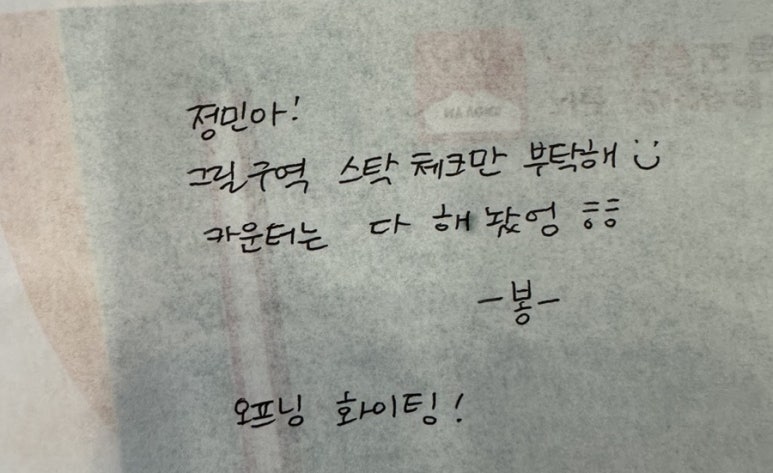 정민아!
그릴구역 스탁 체크만 부탁해 :)
카운터는 다 해놨엉 ㅎㅎ
-봉-
오프닝 화이팅!